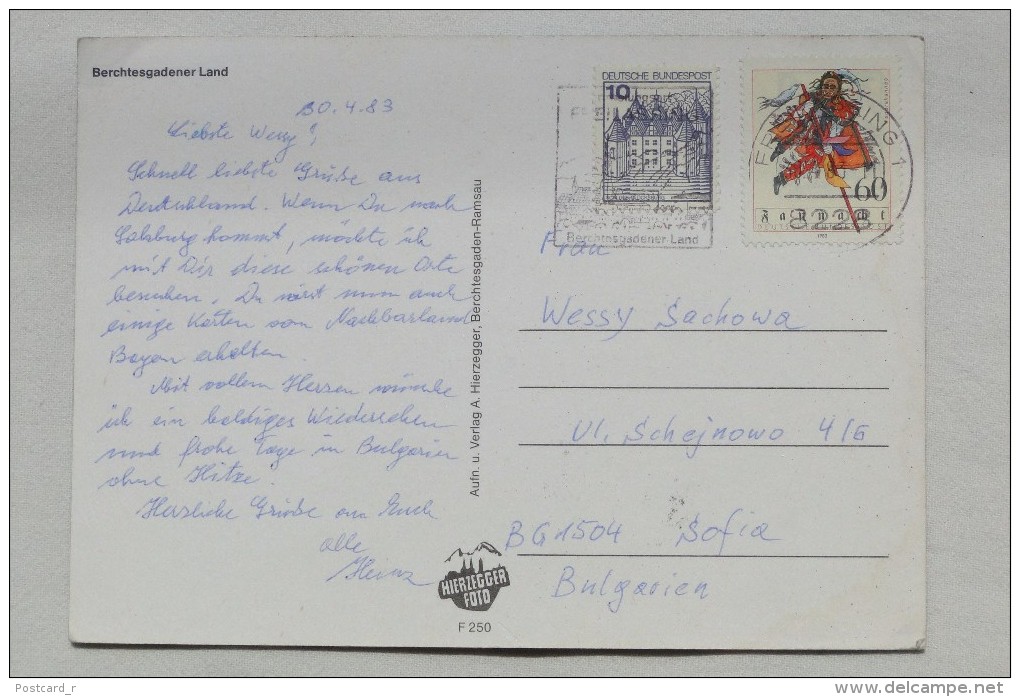 Berchtesgadener Land
30.4.83
Liebste Wessy!
Schnell liebste Grüße aus
Deutschland. Wenn Du nach
Salzburg kommst, möchte ich
mit Dir diese schönen Orte
besuchen. Du wirst nun auch
einige Karten vom Nachbarland
Bayern erhalten.
Mit vollem Herzen wünsche
ich ein baldiges Wiedersehen
und frohe Tage in Bulgarien
ohne Hitze.
Herzliche Grüße an Euch
alle
Heinz
Aufn. u. Verlag A. Hierzegger, Berchtesgaden-Ramsau
HIERZEGGER
FOTO
F 250
DEUTSCHE BUNDESPOST
10
Berchtesgadener Land
60
FREILASSING 1
8228
Frau
Wessy Sachowa
Ul. Schejnowo 4/6
BG 1504 Sofia
Bulgarien
Postcard_r
delcampe.net